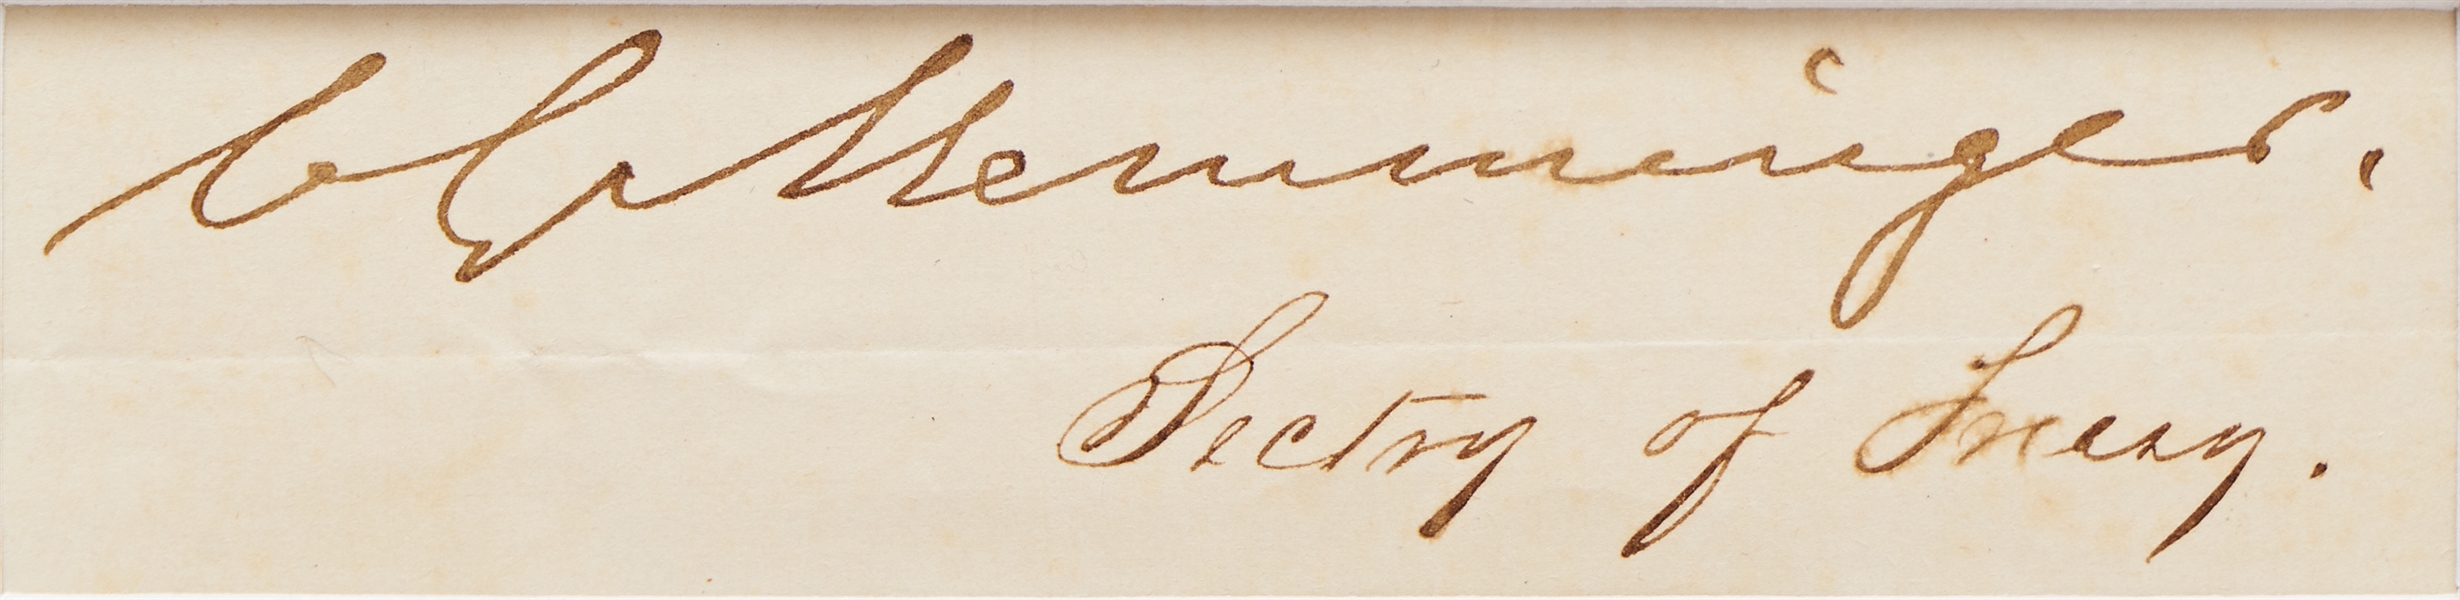 C G Memminger.
Sectry of Tresy.